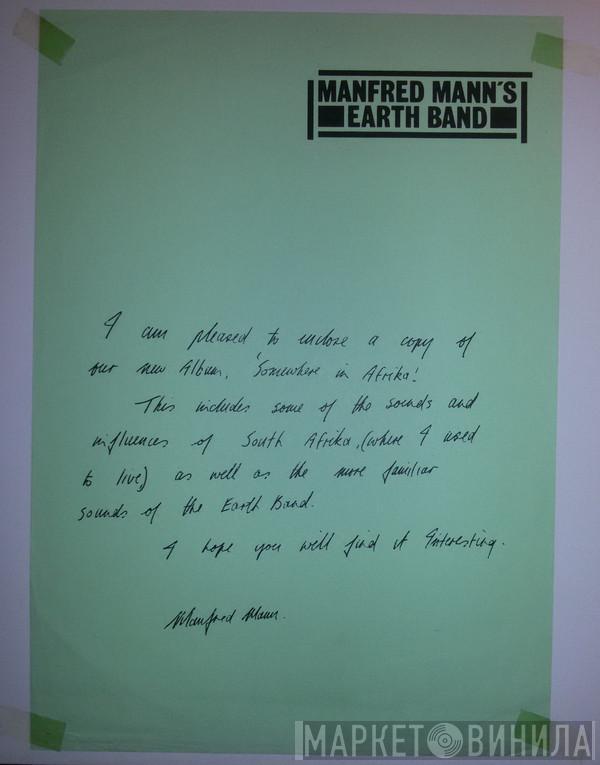 MANFRED MANN'S
EARTH BAND
I am pleased to enclose a copy of
our new Album, 'Somewhere in Afrika!
This includes some of the sounds and
influences of South Afrika, (where I used
to live) as well as the more familiar
sounds of the Earth Band.
I hope you will find it Interesting.
Manfred Mann.
МАРКЕТ ВИНИЛА